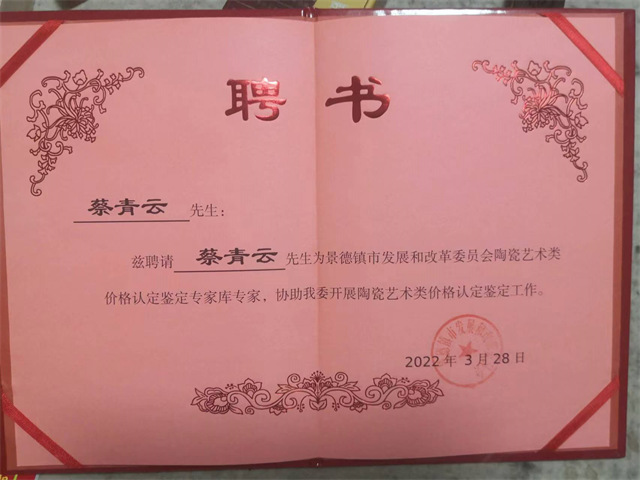 聘书
蔡青云先生：
兹聘请蔡青云先生为景德镇市发展和改革委员会陶瓷艺术类
价格认定鉴定专家库专家，协助我委开展陶瓷艺术类价格认定鉴定工作。
2022年3月28日